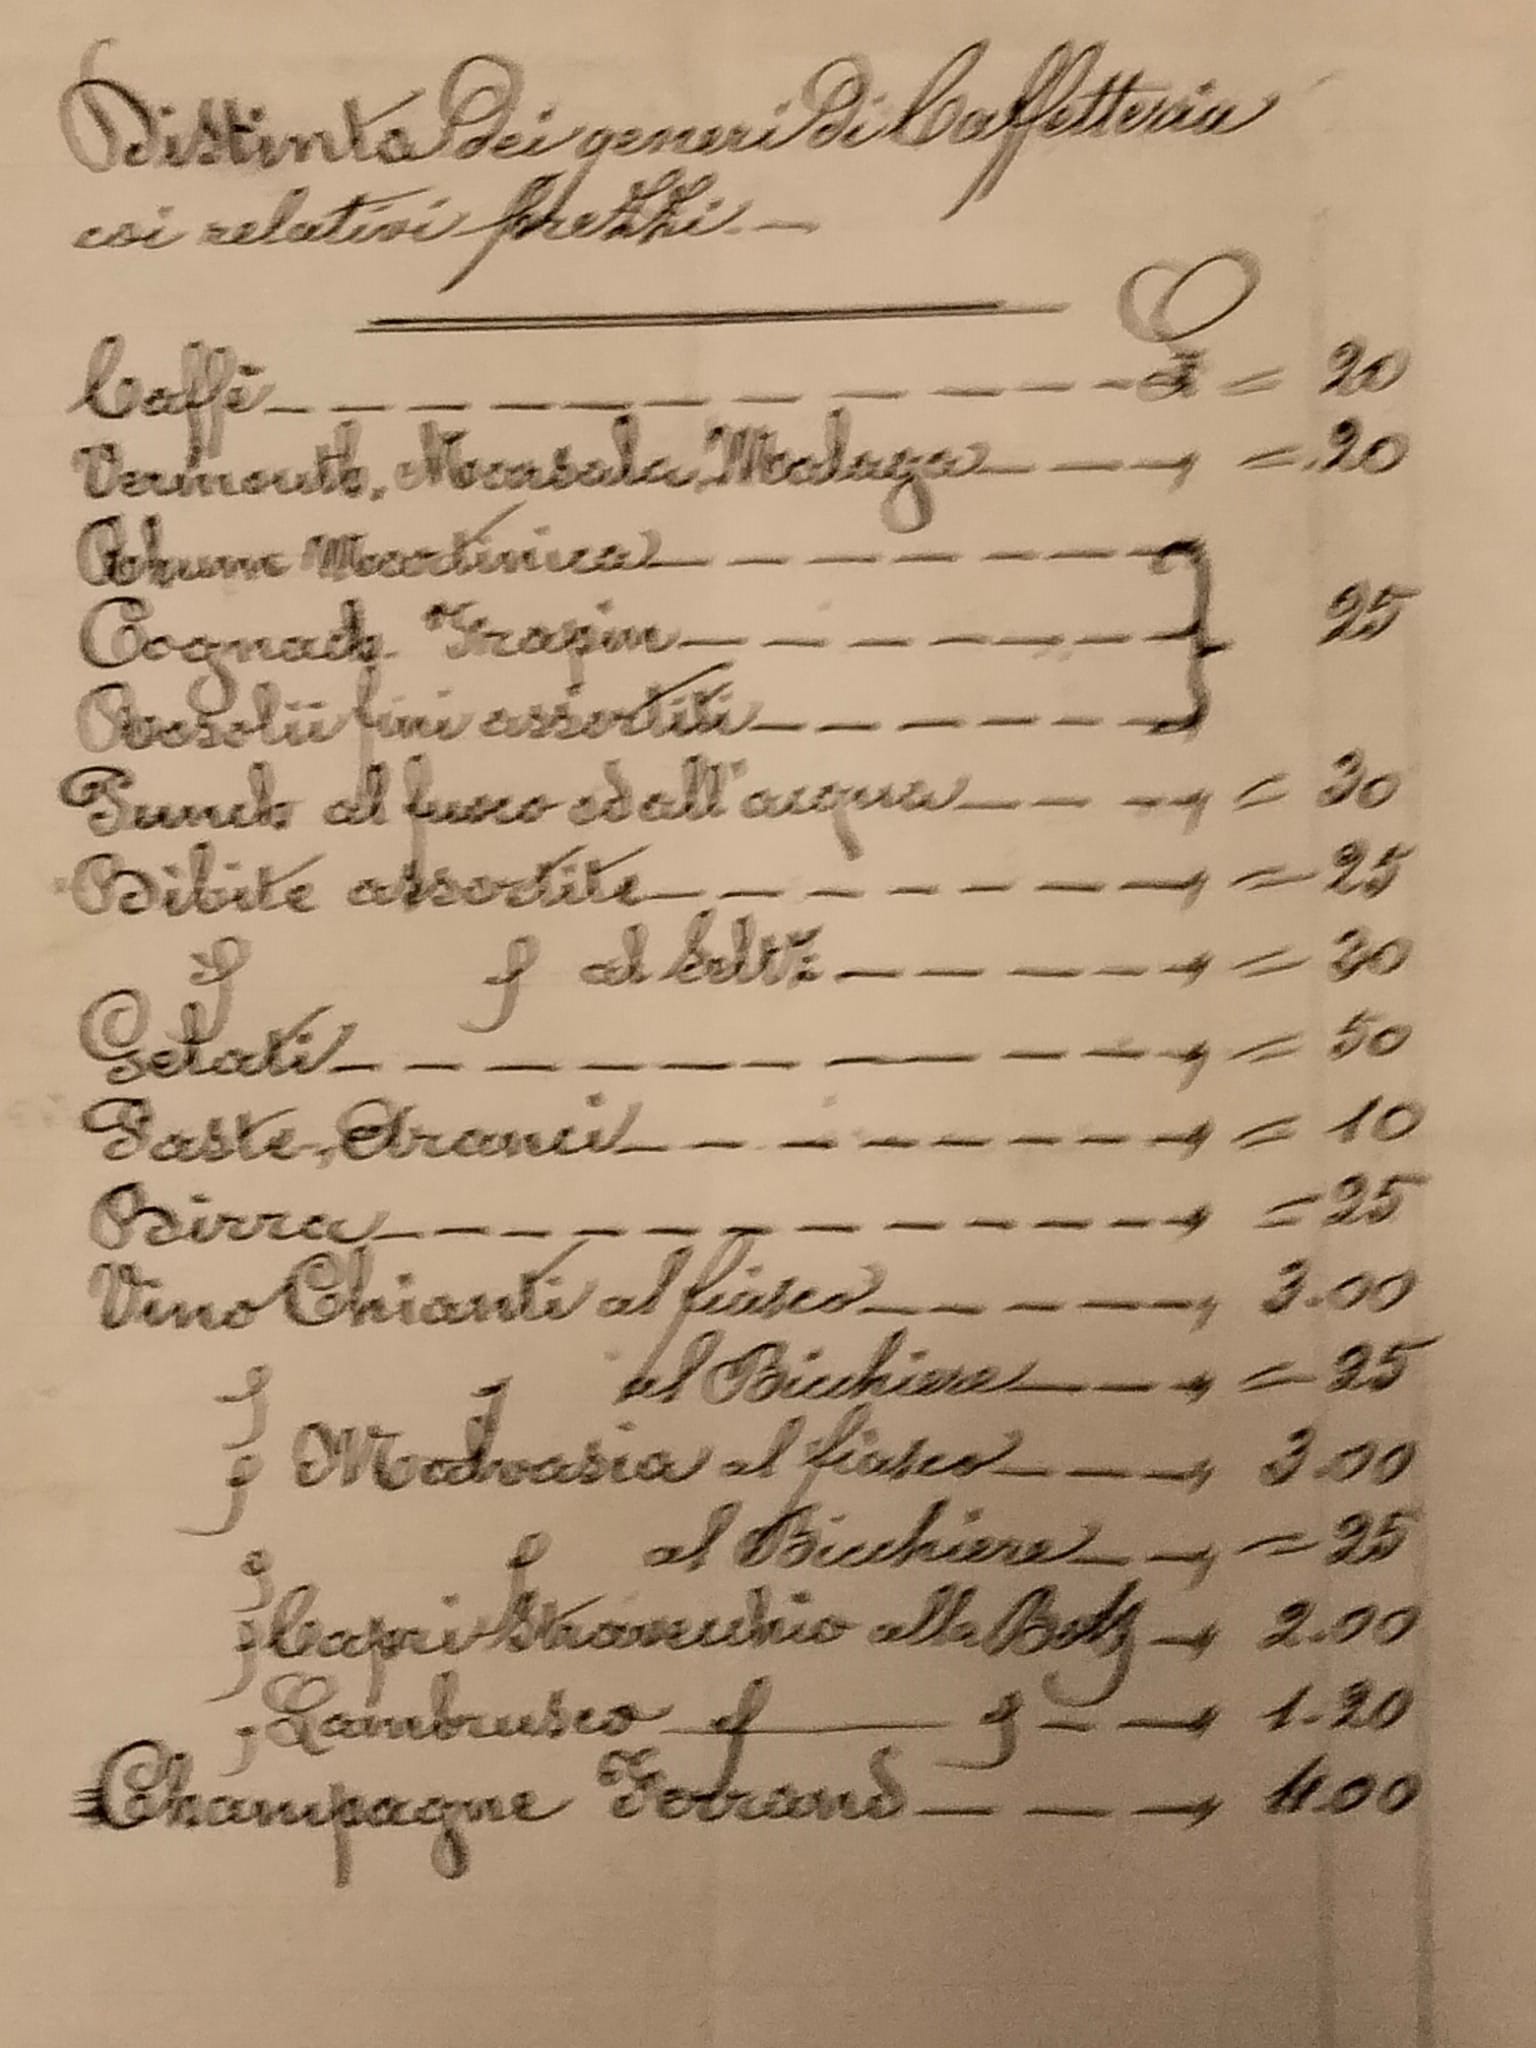 Distinta dei generi di Caffetteria
coi relativi prezzi. —
Caffè a = 20
Vermouth, Marsala, Malaga " = 20
Rhum Martinica
Cognach Frapin 25
Rosolii fini assortiti
Punch al fuoco ed all'acqua " = 30
Bibite assortite " = 25
" " al Seltz " = 30
Gelati " = 50
Paste, Aranci " = 10
Birra " = 25
Vino Chianti al fiasco " 3.00
" " al Bicchiere " = 25
" Malvasia al fiasco " 3.00
" " al Bicchiere " = 25
" Capri Stravecchio alla " 2.00
" Lambrusco " " " 1.20
Champagne " 4.00